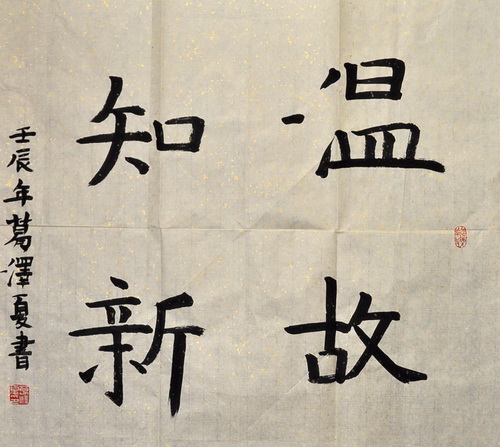 温故
知新
壬辰年葛澤夏書